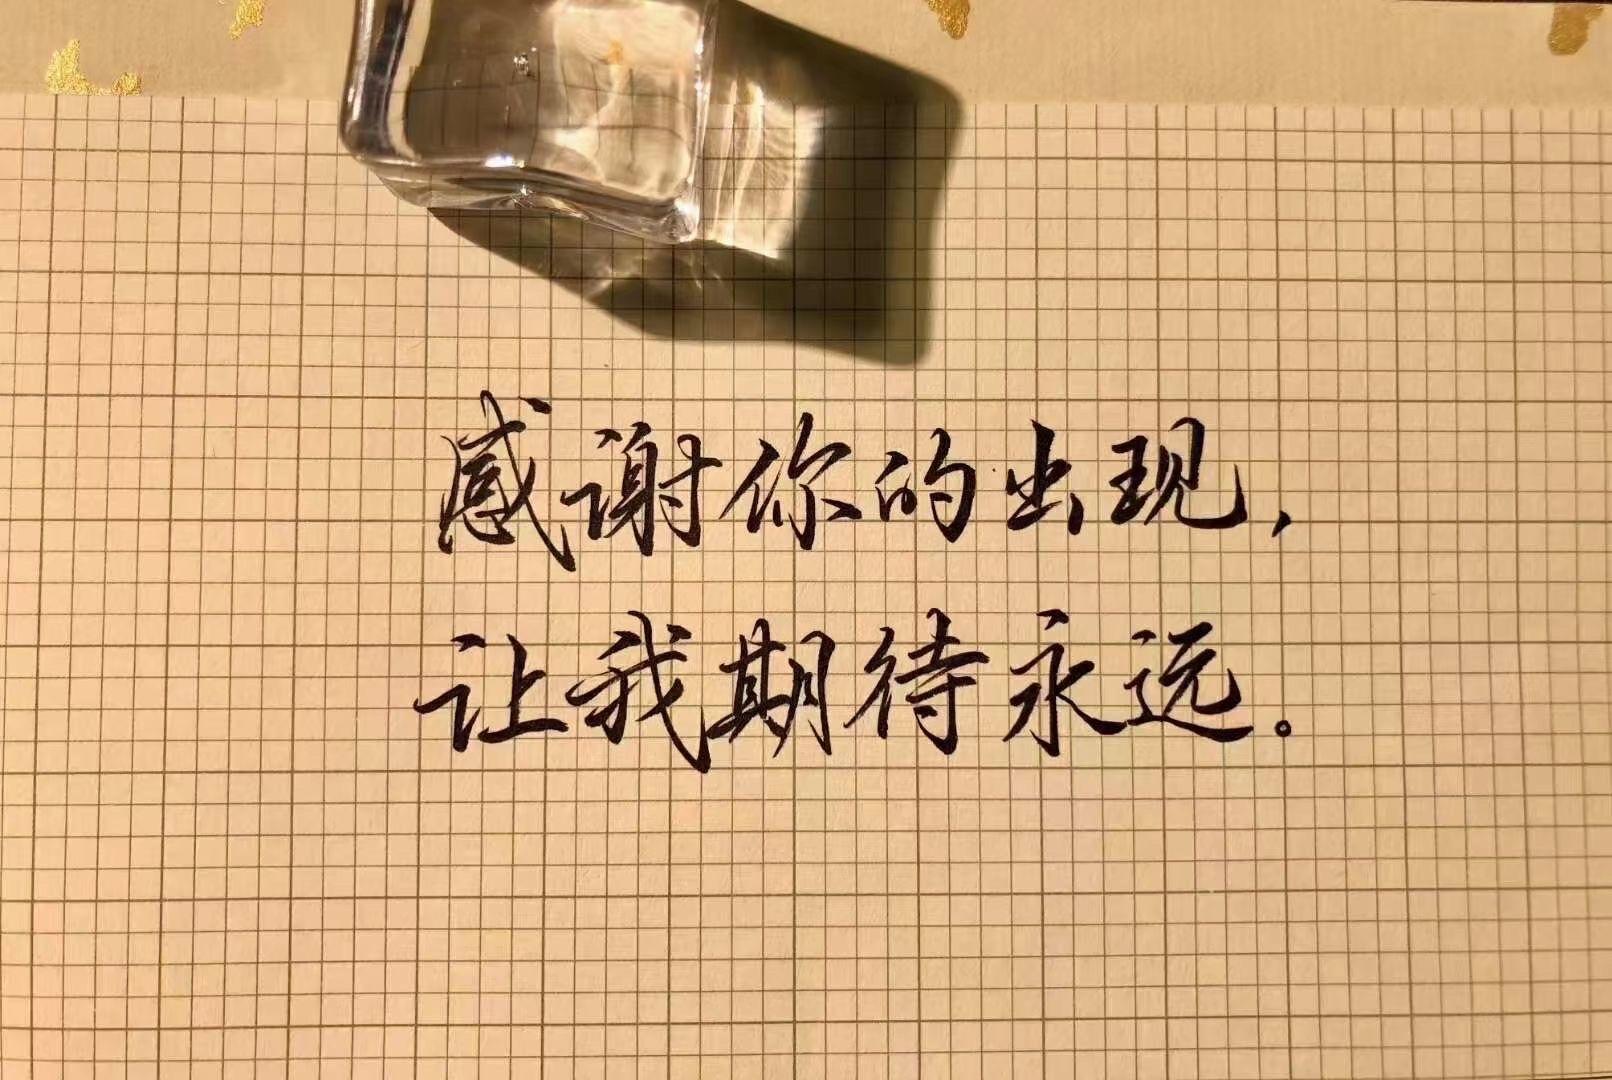 感谢你的出现，
让我期待永远。